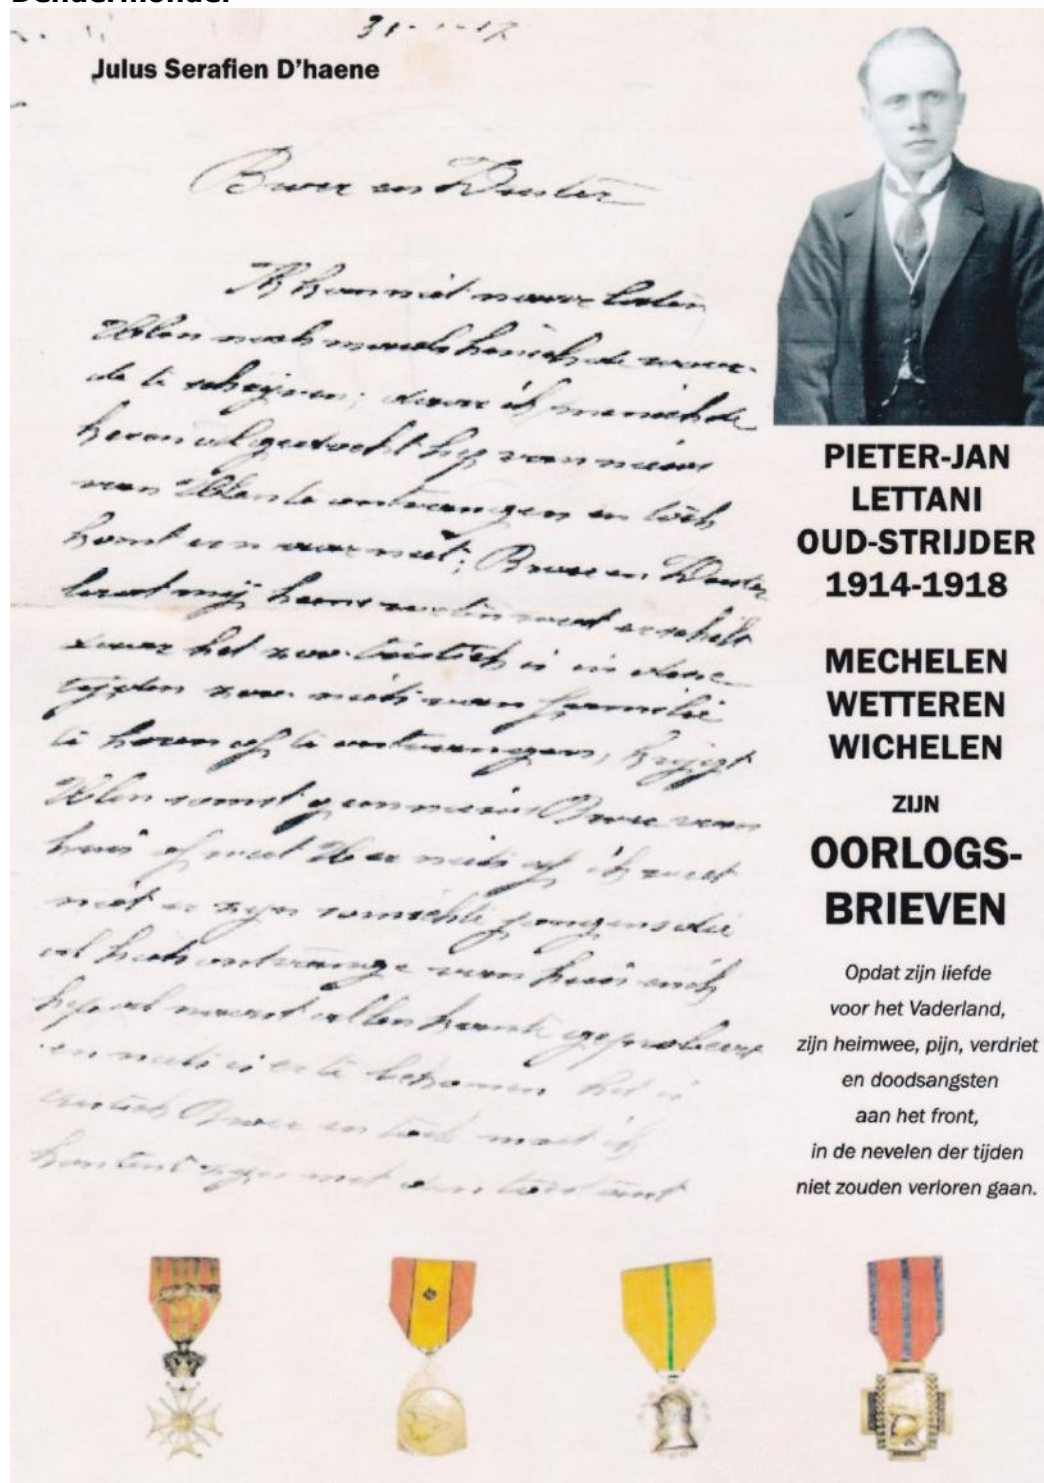 31-1-17
Julus Serafien D'haene
Broer en Zuster
Ik kan niet nauw laten
Ulen noch maals henich de woor-
de te schrijven; daar ik menichde
keren al gedacht hep van nieuws
van Ulen te ontvangen en toch
komt er maar niet; Broer en Zuster
laat mij kome weten wat er schilt
want het zoo triestich is in deze
tijden zoo niets van familie
te horen of te ontvangen, krijgt
Ulen somst geen nieuws Broer van
huis of weet U er niets of ik weet
niet er zijn somichte jongens die
al hiets ontvange van huis en ik
hep al maar allen kante geprobeert
en niets is er te bekomen het is
triestich Broer en toch moet ik
kontent zijn met den toestant
PIETER-JAN
LETTANI
OUD-STRIJDER
1914-1918
MECHELEN
WETTEREN
WICHELEN
ZIJN
OORLOGS-
BRIEVEN
Opdat zijn liefde
voor het Vaderland,
zijn heimwee, pijn, verdriet
en doodsangsten
aan het front,
in de nevelen der tijden
niet zouden verloren gaan.